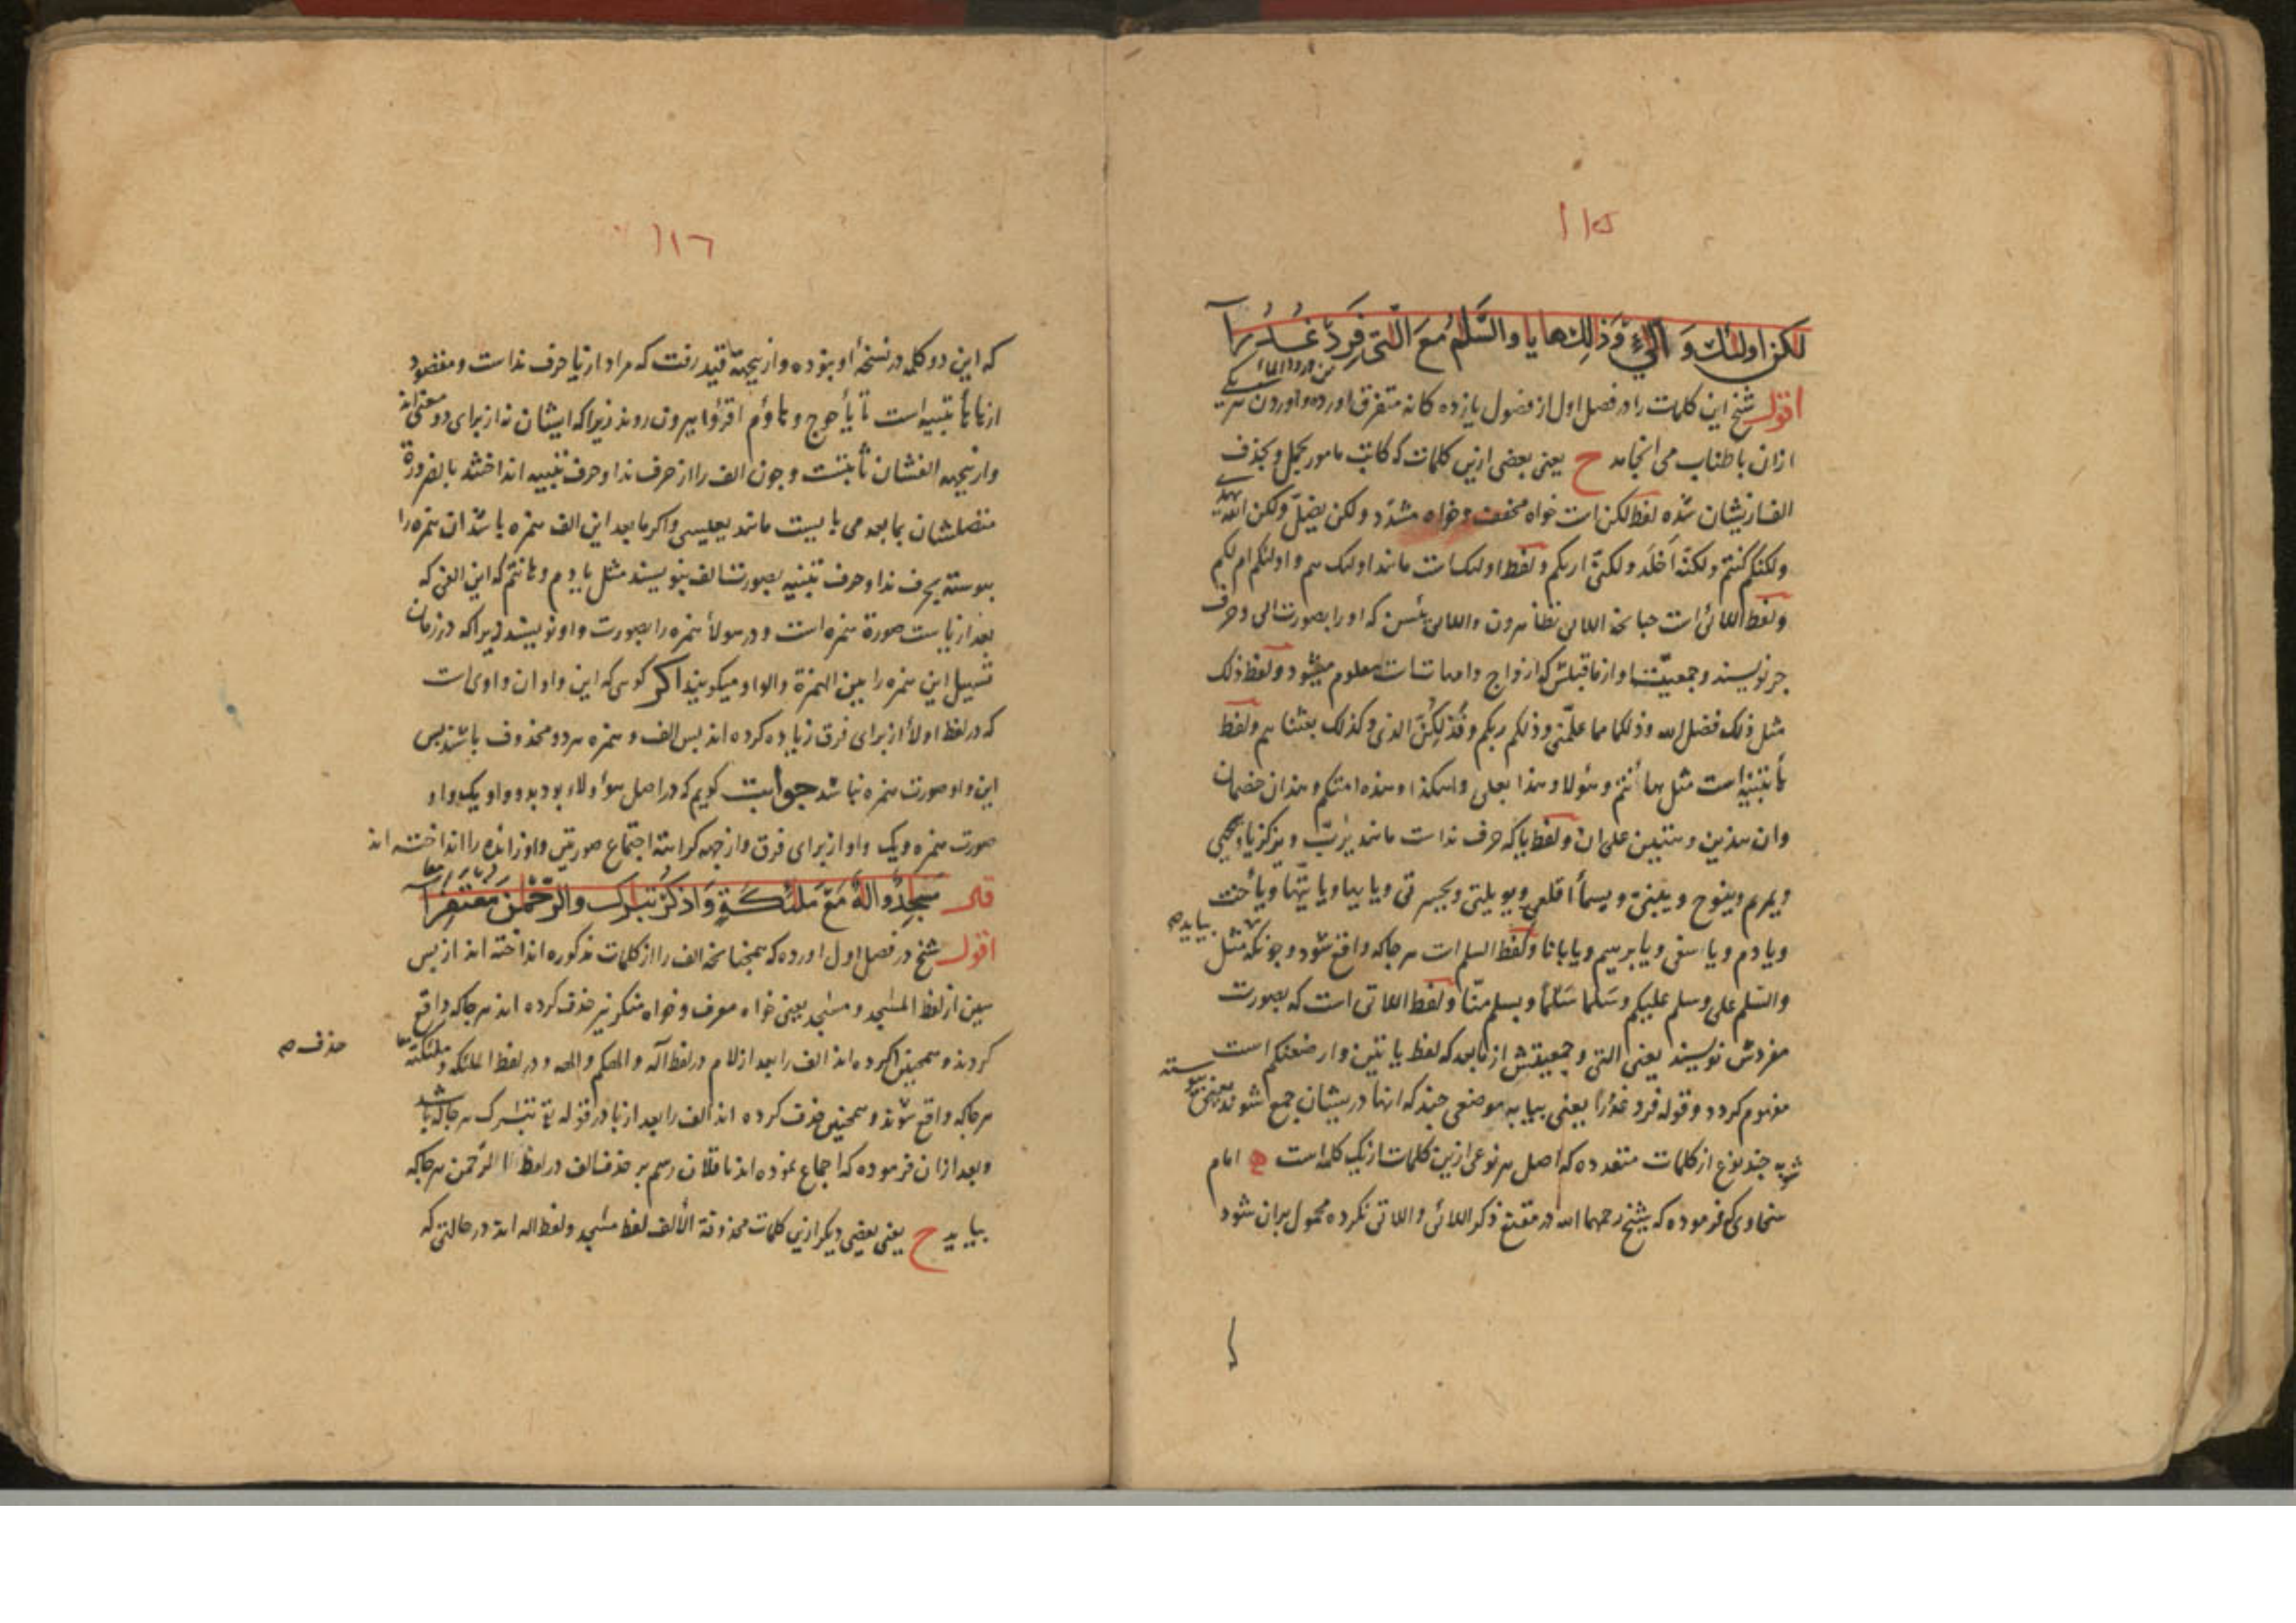 ۱۱۵
لكن اولئك و اللائي و ذلك ها يا والسلم مع اللتي فرد غدرا
اقول شیخ این کلمات را در فصل اول از فصول یازده کانه متفرق اورده و اوردن هر یکی
ازان باطناب می انجامد ح یعنی بعضی ازین کلمات که کاتب مامور بحذف
الف ازیشان شده لفظ لکن است خواه مخفف و خواه مشدد و لکن یضل و لکن
ولکنکم کنتم ولکنه اخلد ولکنی اریکم ولفظ اولئک است مانند اولئک هم و اولئکم ام لکم
ولفظ اللائی است چنانچه اللائی تظاهرون واللائی یئسن که او را بصورت الی و حرف
جر نویسند و جمعیت او از ماقبلش که ازواج و امهات است معلوم میشود و لفظ ذلک
مثل ذلک فضل الله وذلکما مما علمنی وذلکم ربکم و فذلکن الذی و کذلک بعثناهم و لفظ
ها تنبیه است مثل هاانتم و هؤلاء و هذا بعلی و اهکذا و هذه امتکم و هذان خصمان
وان هذین و هتین علی ان و لفظ یا که حرف ندا است مانند یرب و یزکریا و ییحیی
ویمریم وینوح و یبنی و یسماء اقلعی و یویلتی ویحسرتی ویایها ویایتها ویاخت
ویادم و یاسفی ویابرهیم ویابانا ولفظ السلم است هرجا که واقع شود و چونکه مثل
بیاید صح
والسلم علی وسلم علیکم وسلما سلما وبسلم منا ولفظ اللاتی است که بصورت
مفردش نویسند یعنی التی و جمعیتش از مابعد که لفظ یاتین و ارضعنکم است
مفهوم کردد وقوله فرد غدرا یعنی بیا به موضعی چند که ابها دریشان جمع شود یعنی
چند نوع از کلمات متعدده که اصل هر نوعی ازین کلمات از یک کلمه است امام
سخاوی فرموده که شیخ رحمهما الله در مقنع ذکر اللائی و اللاتی نکرده محمول بران شود
۱۱۶
که این دو کلمه در نسخهٔ او بنوده و ازیجهة قید رفت که مراد از یا حرف ندا است و مقصود
از ها ها تنبیه است تا یأجوج و هاؤم اقرؤا بیرون روند زیرا که ایشان نه از برای دو معنی اند
وازیجهه الفشان ثابتست و چون الف را از حرف ندا و حرف تنبیه انداختند بالضرورة
متصلشان بمابعد می بایست مانند یعیسی و اکر مابعد این الف همزه باشد ان همزه را
پیوسته بحرف ندا و حرف تنبیه بصورت الف بنویسند مثل یادم و هانتم که این الفی که
بعد از یاست صورة همزه است و در هولاء همزه را بصورت واو نویسند زیرا که در زمان
تسهیل این همزه را بین الهمزة والواو میکویند اکر کوی که این واو ان واوی است
که در لفظ اولاء از برای فرق زیاده کرده اند پس الف و همزه هر دو محذوف باشند پس
این واو صورت همزه نباشد جواب کویم که در اصل هؤولاء بود بدو واو یک واو
صورت همزه و یک واو از برای فرق و از جهه کراهة اجتماع صورتین واو زایده را انداخته اند
قال مسجد واله مع ملئكة واذكر تبارك والرحمن مغتفرا
اقول شیخ در فصل اول اورده که همچنانچه الف را از کلمات مذکوره انداخته اند از پس
سین از لفظ المسجد و مسجد یعنی خواه معرف و خواه منکر نیز حذف کرده اند هرجا که واقع
کردند و همچنین کرده اند الف را بعد از لام در لفظ اله و الهکم و الهه و در لفظ الملئکه و ملئکته
حذف صح
هرجا که واقع شوند و همچنین حذف کرده اند الف را بعد از با در قوله تع تبرک هرجا که باشد
وبعد ازان فرموده که اجماع نموده اند ناقلان رسم بر حذف الف در لفظ الرحمن هرجا که
بیاید ح یعنی بعضی دیکر ازین کلمات محذوفة الالف لفظ مسجد ولفظ اله اند در حالتی که